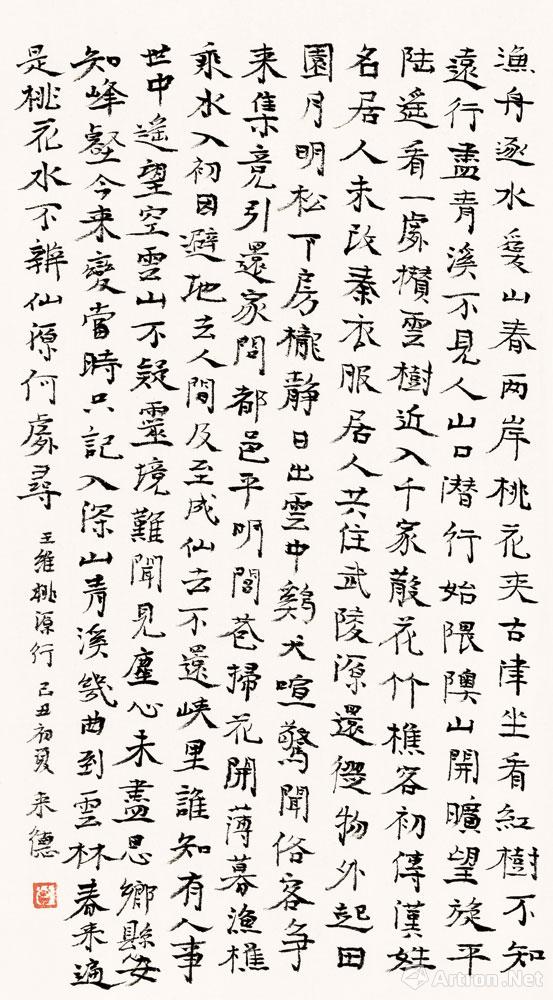 漁舟逐水愛山春两岸桃花夾古津坐看紅樹不知
遠行盡青溪不見人山口潜行始隈隩山開曠望旋平
陸遥看一處攢雲樹近入千家散花竹樵客初傳漢姓
名居人未改秦衣服居人共住武陵源還從物外起田
園月明松下房櫳靜日出雲中鷄犬喧驚聞俗客争
来集竟引還家問都邑平明閭巷掃花開薄暮漁樵
乘水入初因避地去人間及至成仙去不還峡里誰知有人事
世中遥望空雲山不疑靈境難聞見塵心未盡思鄉縣安
知峰壑今来變當時只記入深山青溪幾曲到雲林春来遍
是桃花水不辨仙源何處尋 王維桃源行 己丑初夏 来德
Artron.Net